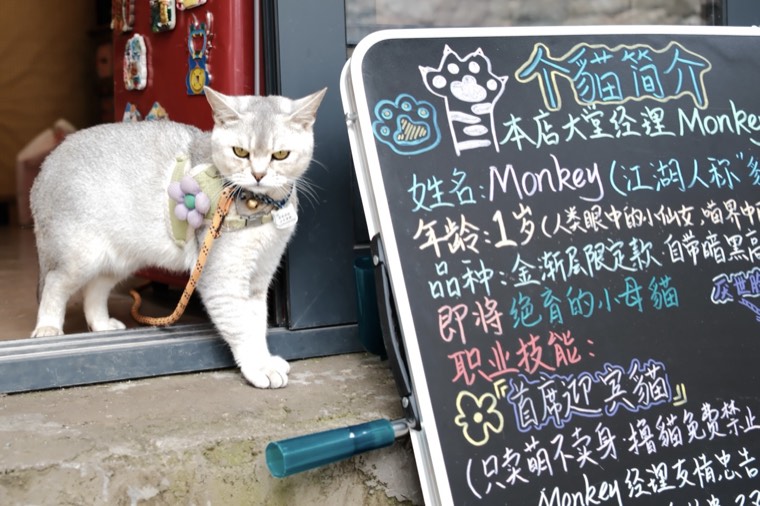 个貓简介
本店大堂经理Monkey
姓名:Monkey(江湖人称"
年龄:1岁(人类眼中的小仙女 喵界中
品种:金渐层限定款 自带暗黑高
即将绝育的小母貓
职业技能:
『首席迎宾貓』
(只卖萌不卖身 撸貓免费禁止
Monkey经理友情忠告